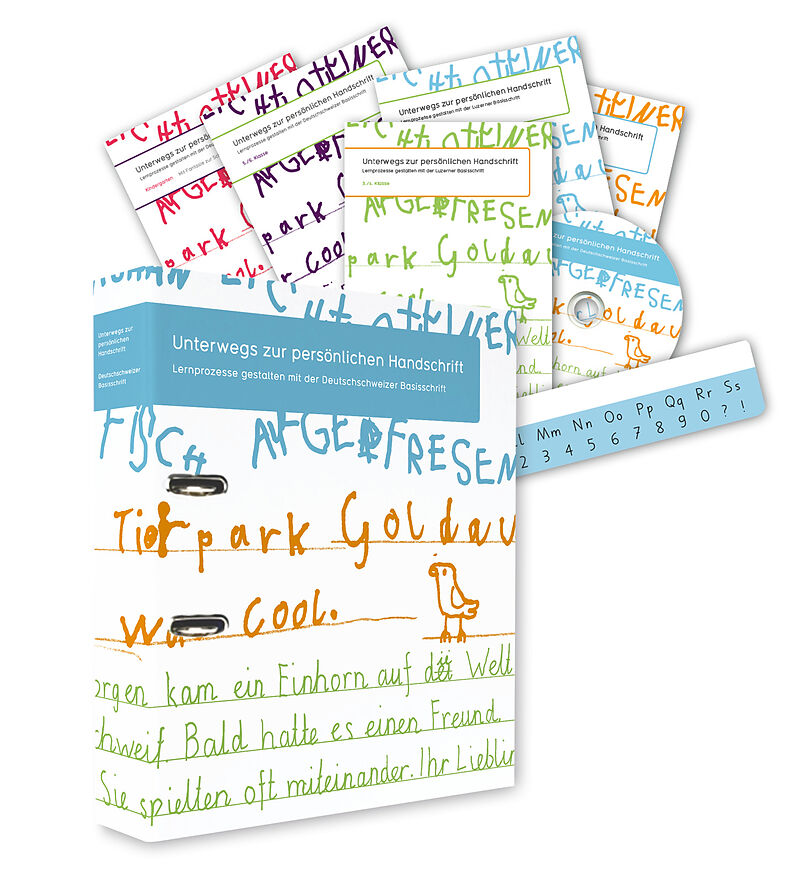 Unterwegs zur persönlichen
Lernprozesse gestalten mit der Deutschschweizer
Kindergarten
AUFGE
park
Unterwegs zur persönlichen Handschrift
Lernprozesse gestalten mit der Deutschschweizer Basisschrift
5./6. Klasse
park
Cool
Unterwegs zur persönlichen Handschrift
Lernprozesse gestalten mit der Luzerner Basisschrift
Unterwegs zur persönlichen Handschrift
Lernprozesse gestalten mit der Luzerner Basisschrift
3./4. Klasse
AUFGEFRESEN
park Goldau
Welt
zur persönlichen Handschrift
Basisschrift
FRESEN
Goldau
Ll Mm Nn Oo Pp Qq Rr Ss
2 3 4 5 6 7 8 9 0 ? !
Unterwegs zur
persönlichen
Handschrift
Deutschschweizer
Basisschrift
Unterwegs zur persönlichen Handschrift
Lernprozesse gestalten mit der Deutschschweizer Basisschrift
FISCH AUFGEFRESEN
Tierpark Goldau
cool.
orgen kam ein Einhorn auf die Welt
chweif. Bald hatte es einen Freund.
Sie spielten oft miteinander. Ihr Lieblin